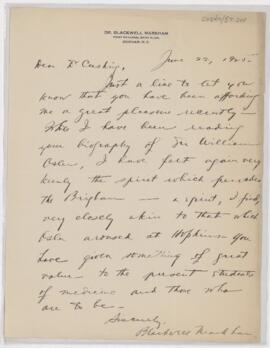 DR. BLACKWELL MARKHAM
FIRST NATIONAL BANK BLDG.
DURHAM, N. C.
June 22, 1925-
Dear Dr Cushing;
Just a line to let you
know that you have been affording
me a great pleasure recently -
When I have been reading
your biography of Sir William
Osler, I have felt again very
keenly the spirit which pervades
the Brigham - a spirit, I find,
very closely akin to that which
Osler aroused at Hopkins. You
have given something of great
value to the present students
of medicine and those who
are to be -
Sincerely,
Blackwell Markham